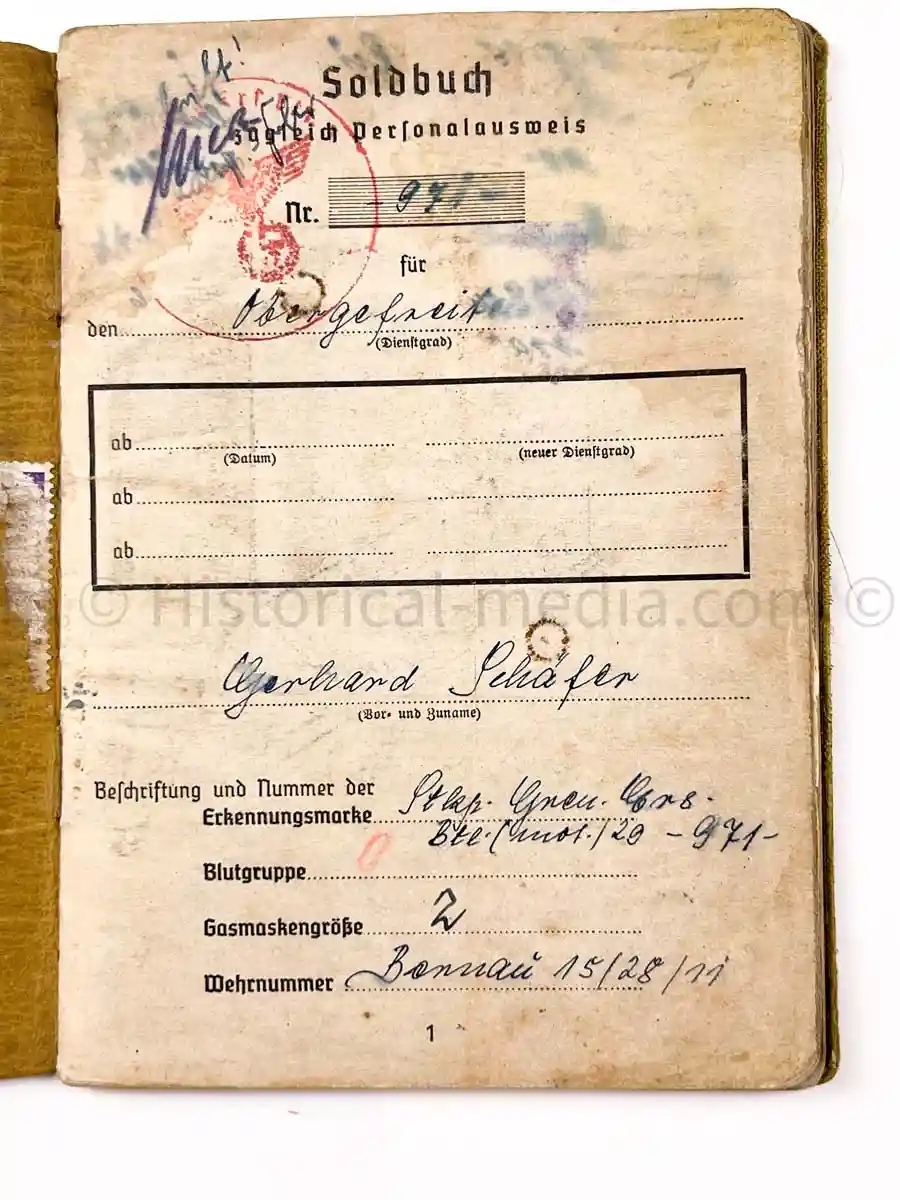 Soldbuch
zugleich Personalausweis
Nr. - 971 -
für
den Obergefreit
(Dienstgrad)
ab
(Datum) (neuer Dienstgrad)
ab
ab
© Historical-media.com ©
Gerhard Schäfer
(Vor- und Zuname)
Beschriftung und Nummer der
Erkennungsmarke Stkp. Gren. Ers.
Btl. (mot.) 29 - 971 -
Blutgruppe 0
Gasmaskengröße 2
Wehrnummer Bernau 15/28/11
1